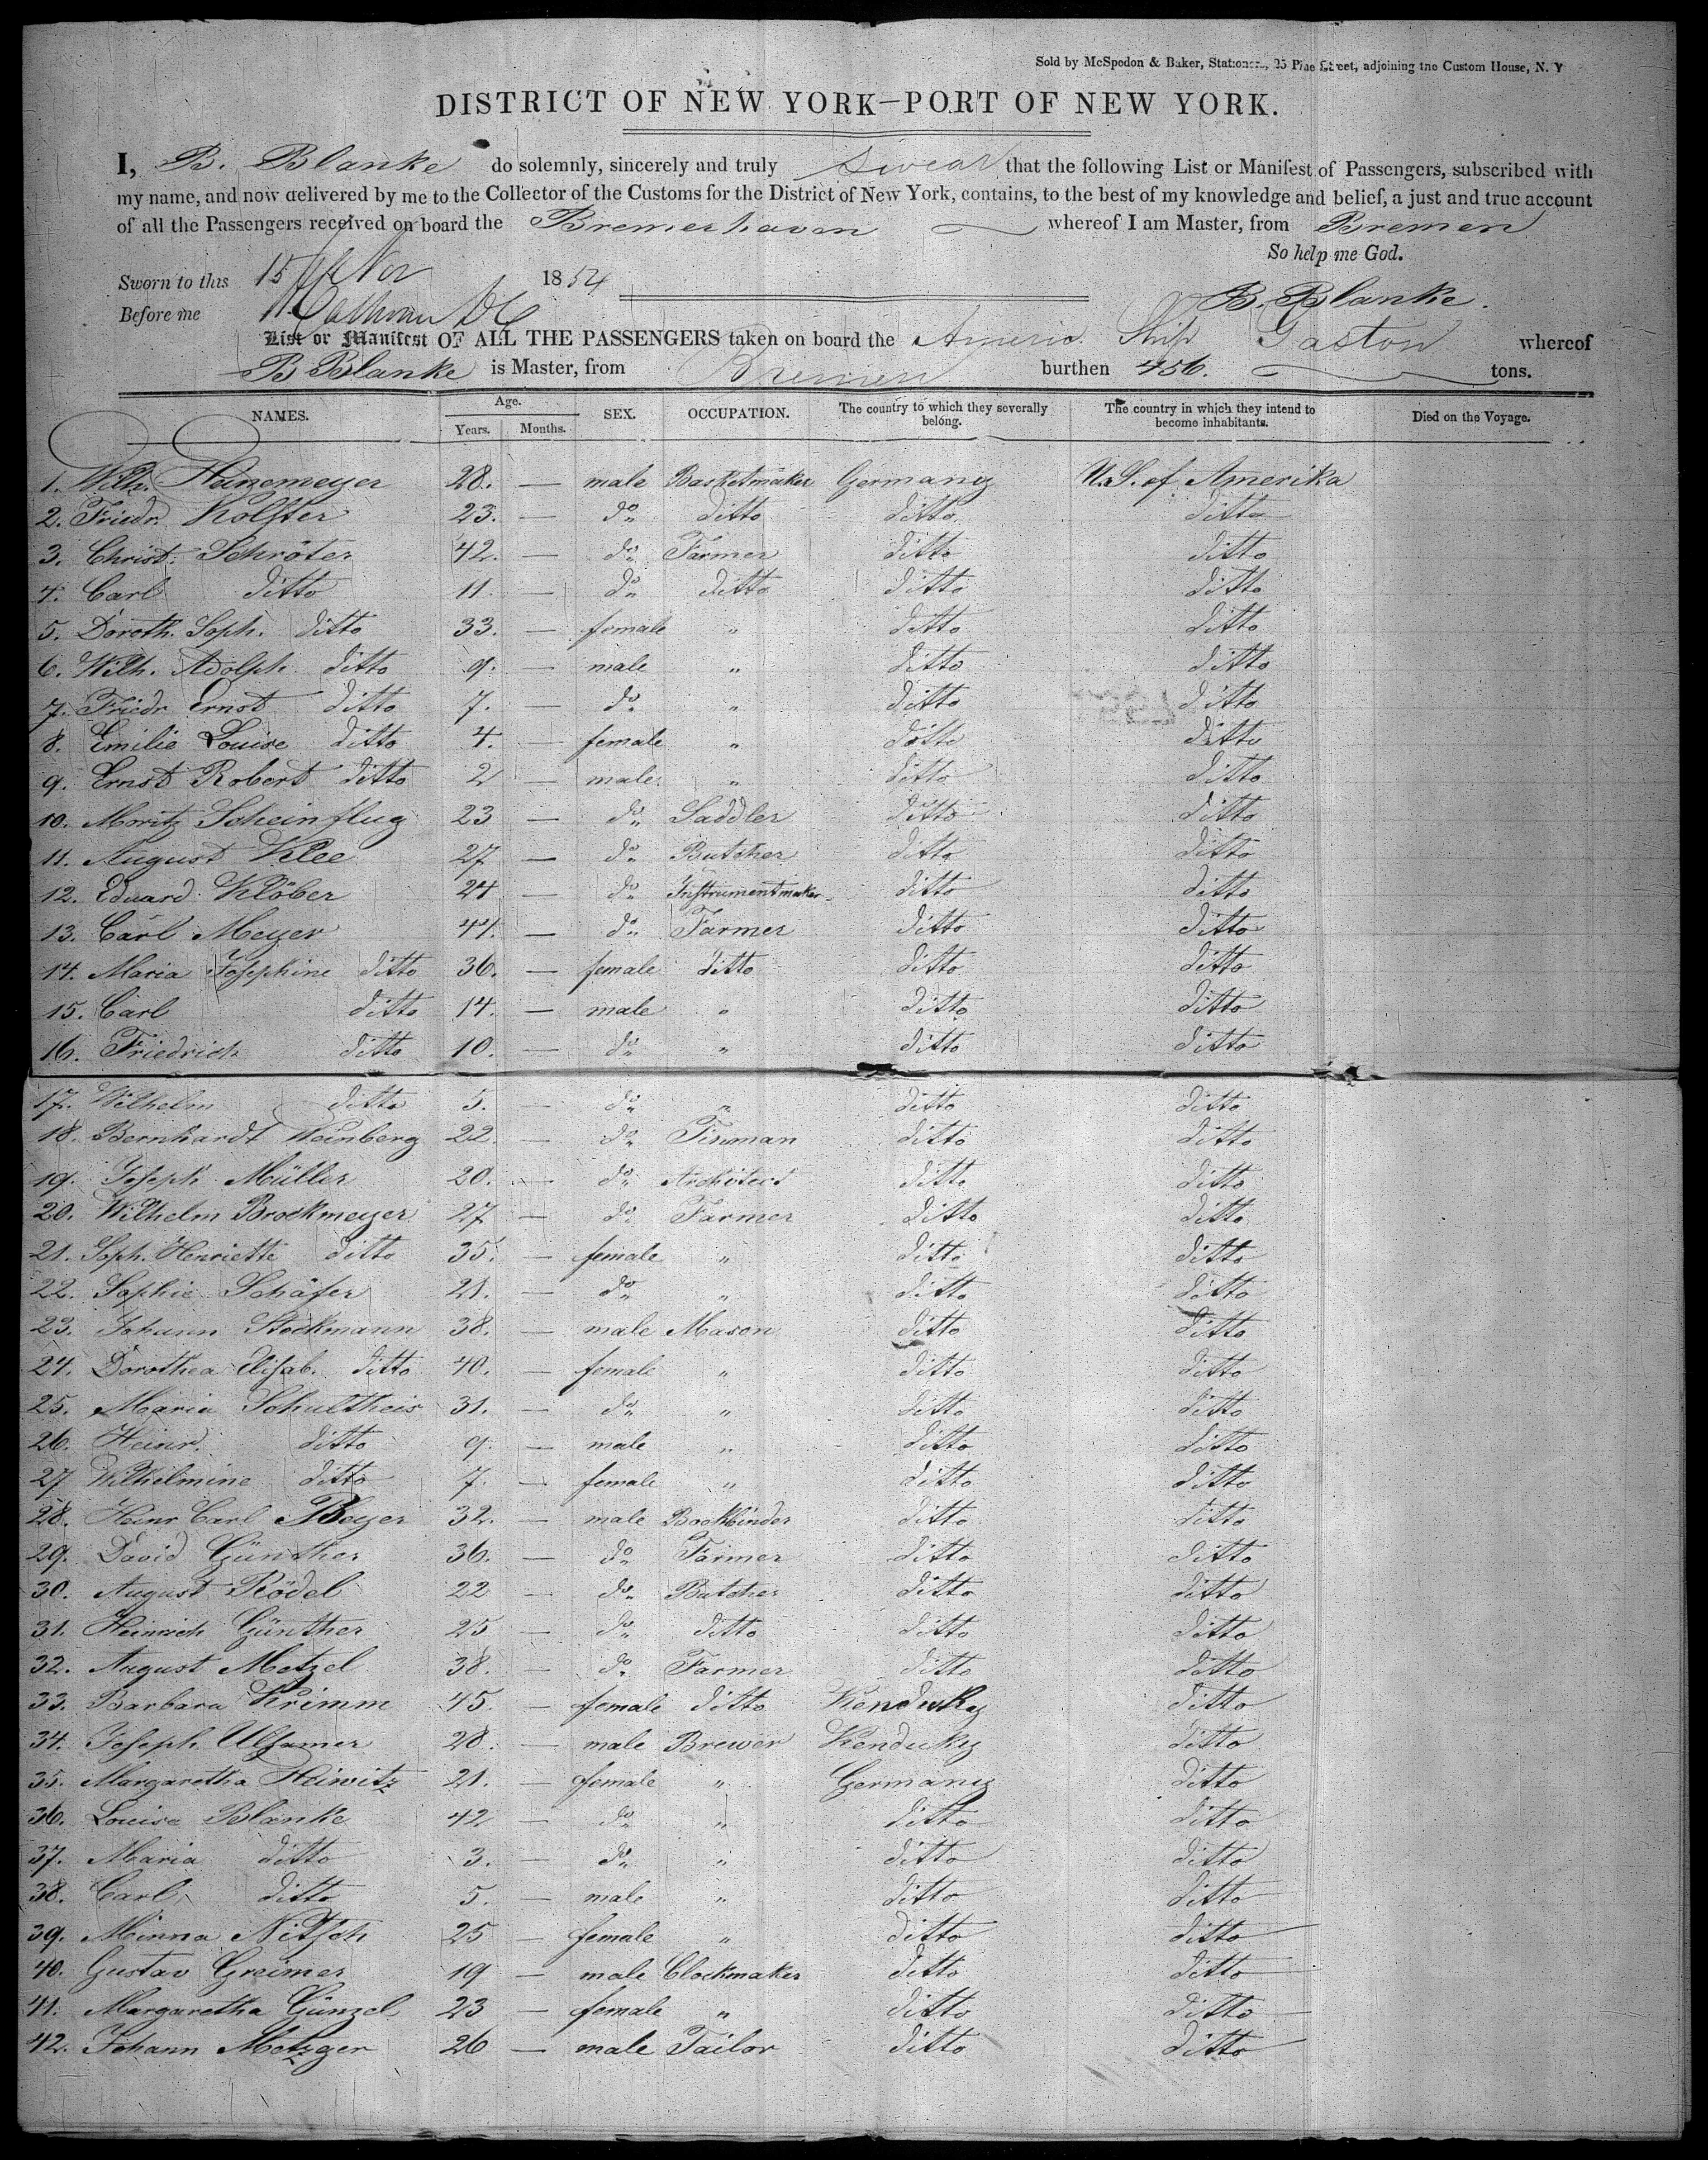 Sold by McSpedon & Baker, Stationers, 25 Pine Street, adjoining the Custom House, N. Y
DISTRICT OF NEW YORK—PORT OF NEW YORK.
I, B. Blanke do solemnly, sincerely and truly swear that the following List or Manifest of Passengers, subscribed with
my name, and now delivered by me to the Collector of the Customs for the District of New York, contains, to the best of my knowledge and belief, a just and true account
of all the Passengers received on board the Bremerhaven whereof I am Master, from Bremen
So help me God.
Sworn to this 15 Nov 1854
B. Blanke.
Before me
List or Manifest OF ALL THE PASSENGERS taken on board the Americ. Ship Gaston whereof
B Blanke is Master, from Bremen burthen 456. tons.
NAMES. Age. Years. Months. SEX. OCCUPATION. The country to which they severally belong. The country in which they intend to become inhabitants. Died on the Voyage.
1. Wilh. Heinemeyer 28. — male Basketmaker Germany U.S. of Amerika
2. Friedr. Kolster 23. — do ditto ditto ditto
3. Christ. Schröter 42. — do Farmer ditto ditto
4. Carl ditto 11. — do ditto ditto ditto
5. Doroth. Soph. ditto 33. — female " ditto ditto
6. Wilh. Adolph ditto 9. — male " ditto ditto
7. Friedr Ernst ditto 7. — do " ditto ditto
8. Emilie Louise ditto 4. — female " ditto ditto
9. Ernst Robert ditto 2 — male " ditto ditto
10. Moritz Scheinflug 23 — do Saddler ditto ditto
11. August Klee 27 — do Butcher ditto ditto
12. Eduard Klöber 24 — do Instrumentmaker ditto ditto
13. Carl Meyer 44. — do Farmer ditto ditto
14. Maria Josephine ditto 36. — female ditto ditto ditto
15. Carl ditto 14. — male " ditto ditto
16. Friedrich ditto 10. — do " ditto ditto
17. Wilhelm ditto 5. — do " ditto ditto
18. Bernhardt Weinberg 22. — do Tinman ditto ditto
19. Joseph Müller 20. — do Architect ditto ditto
20. Wilhelm Brockmeyer 27 — do Farmer ditto ditto
21. Soph. Henriette ditto 35. — female " ditto ditto
22. Sophie Schäfer 21. — do " ditto ditto
23. Johann Stockmann 38. — male Mason ditto ditto
24. Dorothea Elisab. ditto 40. — female " ditto ditto
25. Maria Schultheis 31. — do " ditto ditto
26. Heinr. ditto 9. — male " ditto ditto
27 Wilhelmine ditto 7. — female " ditto ditto
28. Heinr Carl Beyer 32. — male Bookbinder ditto ditto
29. David Günther 36. — do Farmer ditto ditto
30. August Rödel 22 — do Butcher ditto ditto
31. Heinrich Günther 25 — do ditto ditto ditto
32. August Metzel 38. — do Farmer ditto ditto
33. Barbara Krimm 45. — female ditto Kenduky ditto
34. Joseph Ulsamer 28. — male Brewer Kenduky ditto
35. Margaretha Heiwitz 21. — female " Germany ditto
36. Louise Blanke 42 — do " ditto ditto
37. Maria ditto 3. — do " ditto ditto
38. Carl ditto 5. — male " ditto ditto
39. Minna Nitsch 25 — female " ditto ditto
40. Gustav Greimer 19 — male Clockmaker ditto ditto
41. Margaretha Günzel 23 — female " ditto ditto
42. Johann Metzger 26 — male Tailor ditto ditto